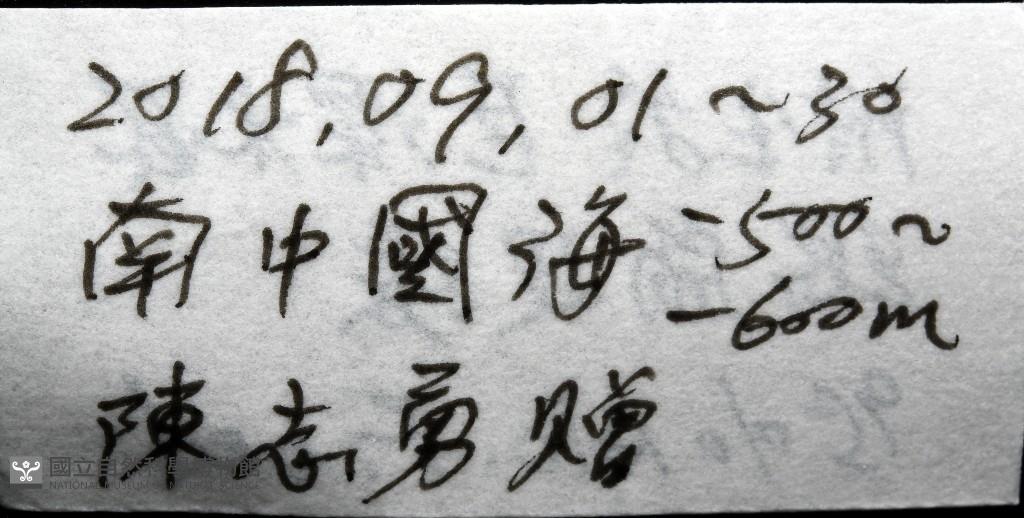 2018.09.01~30
南中國海 -500~
-600m
陳志勇贈
國立自然科學博物館
NATIONAL MUSEUM OF NATURAL SCIENCE